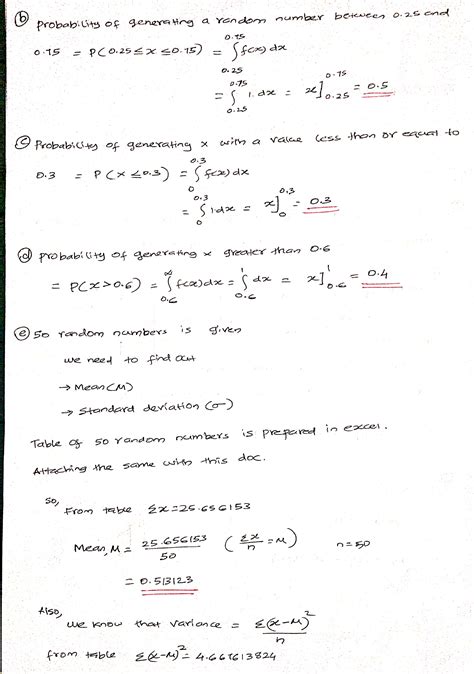 (b) Probability of generating a random number between 0.25 and
0.75 = P(0.25 ≤ x ≤ 0.75) = ∫_{0.25}^{0.75} f(x) dx
= ∫_{0.25}^{0.75} 1. dx = x]_{0.25}^{0.75} = 0.5
(c) Probability of generating x with a value less than or equal to
0.3 = P(x ≤ 0.3) = ∫_{0}^{0.3} f(x) dx
= ∫_{0}^{0.3} 1 dx = x]_{0}^{0.3} = 0.3
(d) Probability of generating x greater than 0.6
= P(x > 0.6) = ∫_{0.6}^{∞} f(x) dx = ∫_{0.6}^{1} dx = x]_{0.6}^{1} = 0.4
(e) 50 random numbers is given
we need to find out
→ Mean (M)
→ Standard deviation (σ)
Table of 50 random numbers is prepared in excel.
Attaching the same with this doc.
So,
From table Σx = 25.656153
Mean, M = 25.656153 / 50 (Σx / n = M) n = 50
= 0.513123
Also,
we know that variance = Σ(x-M)² / n
from table Σ(x-M)² = 4.661613824